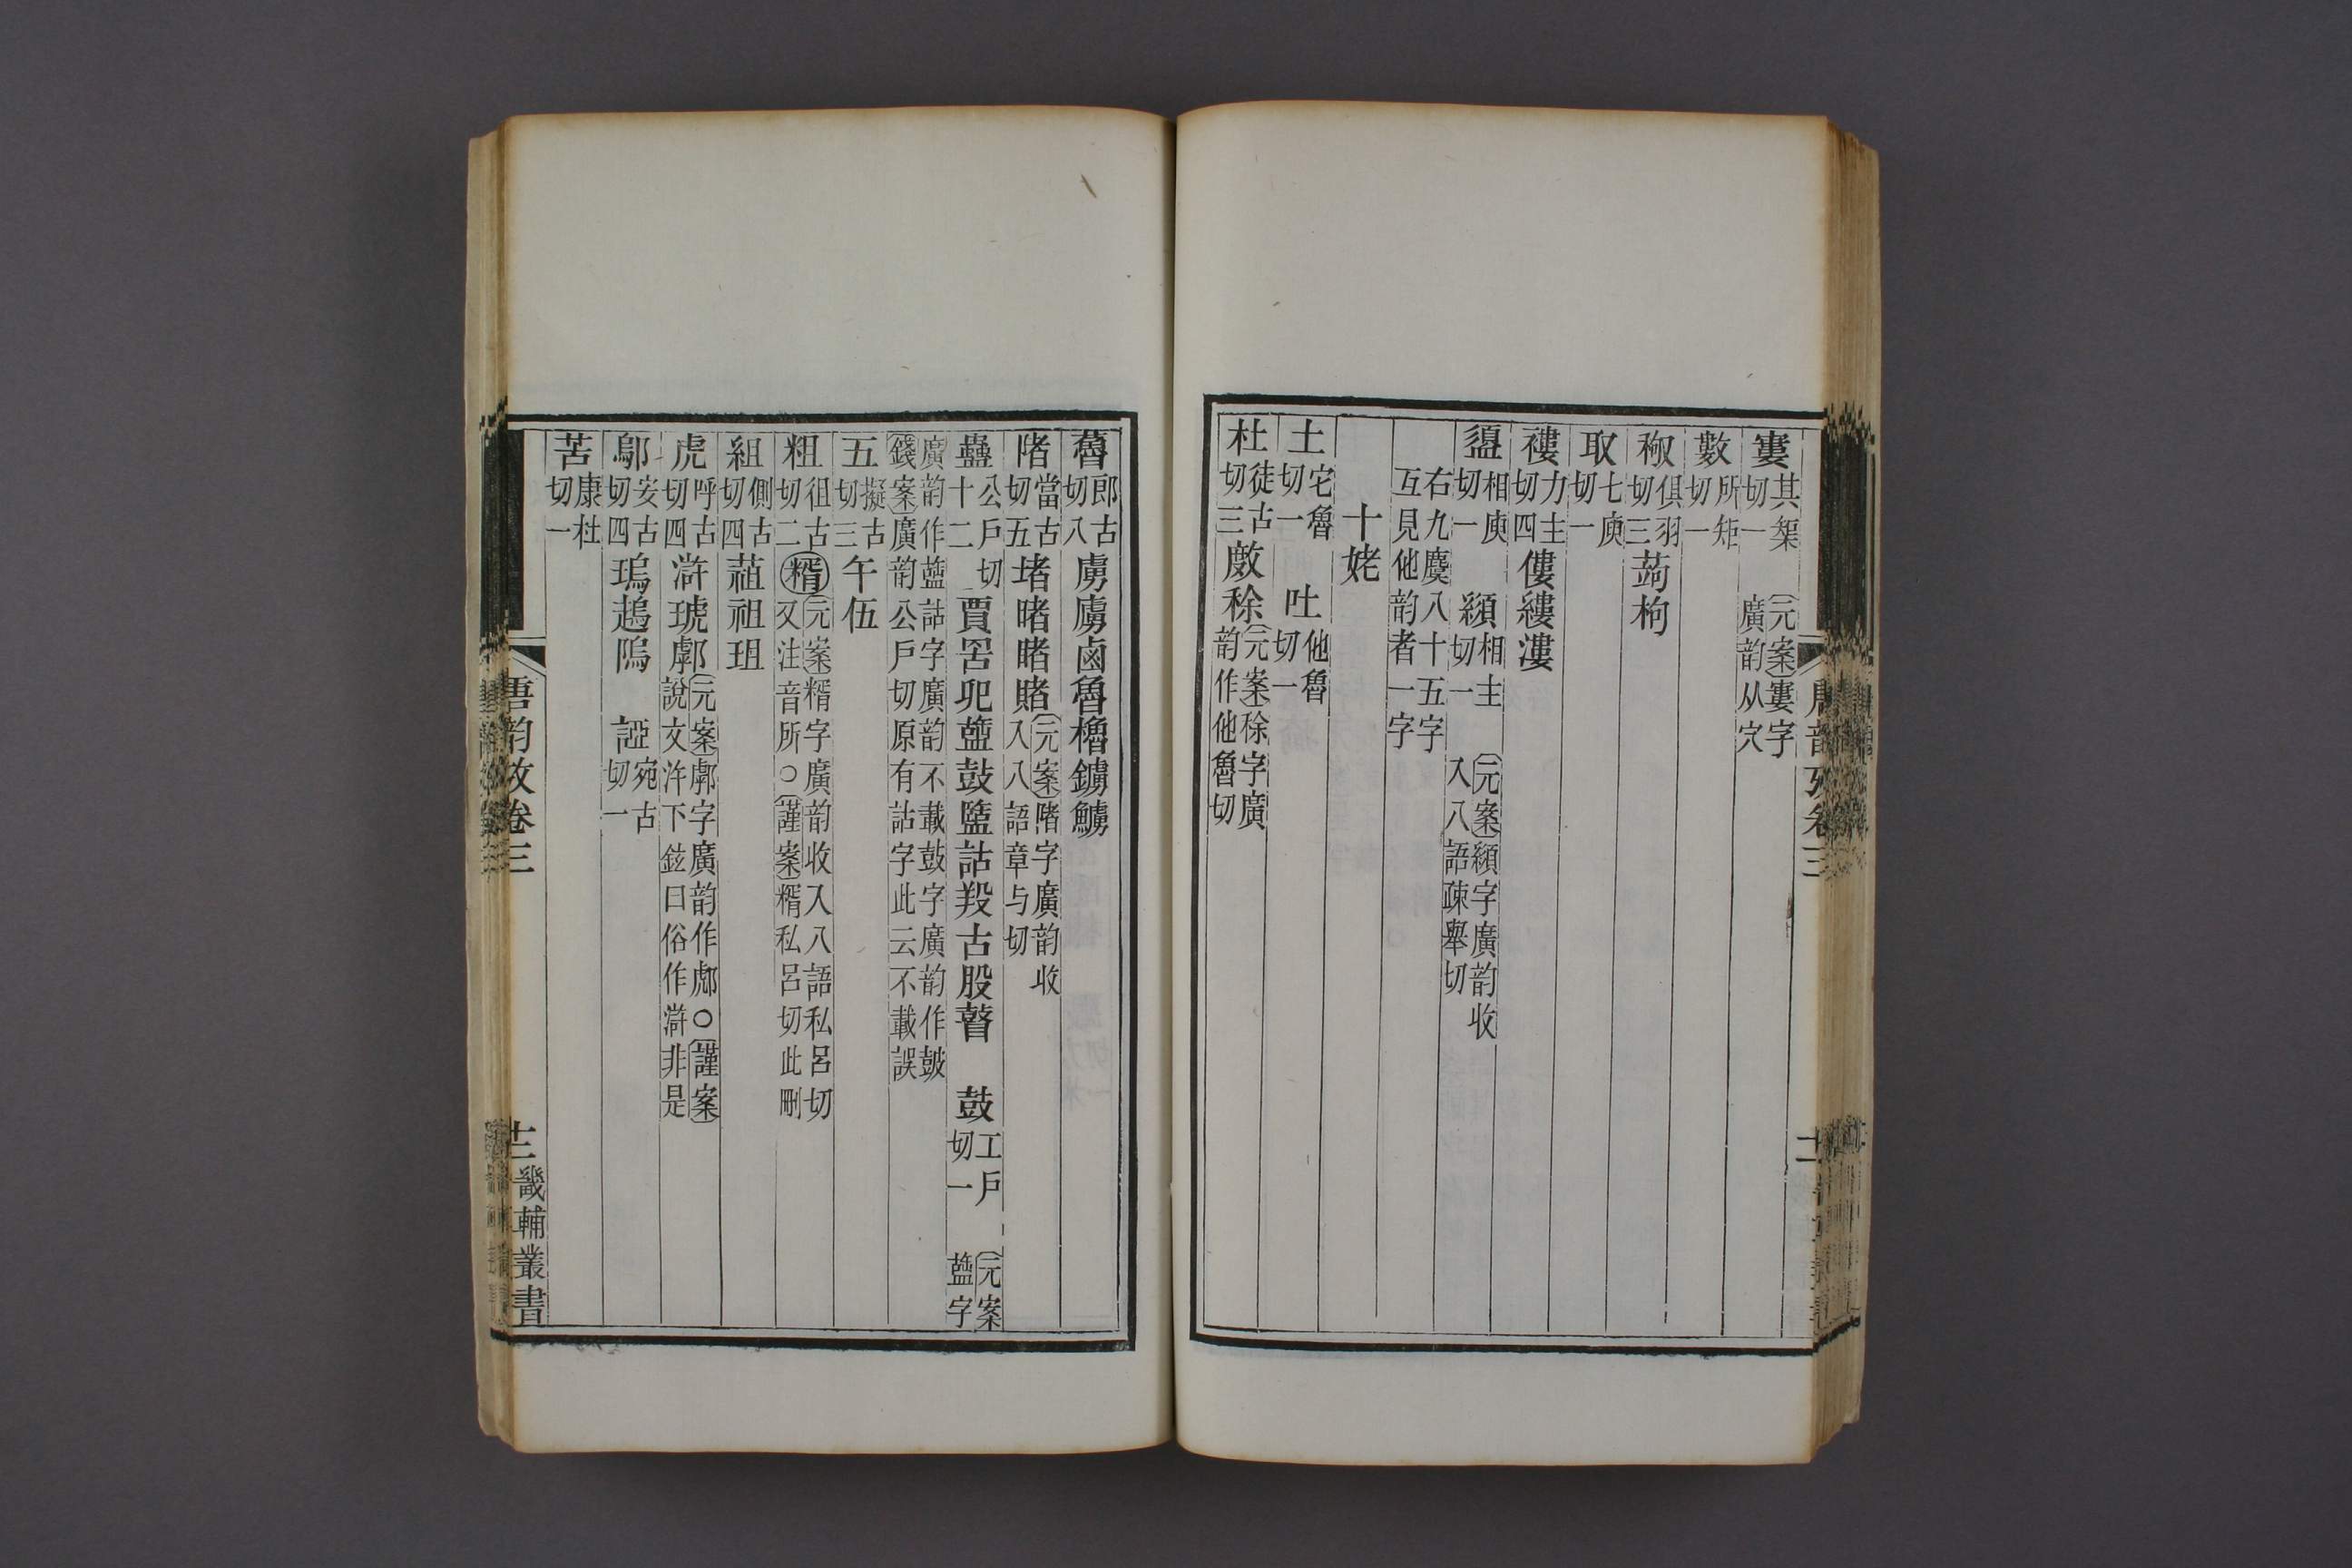 寠其榘切一 元案寠字廣韵从穴
數所矩切一
椒俱羽切三蒟枸
取七庾切一
褸力主切四僂縷漊
盨相庾切一 䫂相主切一 元案䫂字廣韵收入八語疎舉切
右九麌八十五字互見他韵者一字
十姥
土宅魯切一 吐他魯切一
杜徒古切三㪏稌元案稌字廣韵作他魯切
蓾郎古切八虜鹵魯櫓鐪鱸
陼當古切五堵睹賭元案陼字廣韵收入八語章与切
蠱公戶切十二賈罟盬鼓鹽詁羖古股瞽 鼓工戶切一 元案盬字
廣韵作盬詁字廣韵不載鼓字廣韵作皷錢案廣韵公戶切原有詁字此云不載誤
五擬古切三午伍
粗徂古切二糈元案糈字廣韵收入八語私呂切又注音所○謹案糈私呂切此刪
組側古切四蒩祖珇
虎呼古切四滸琥鄠元案鄠字廣韵作鄠○謹案說文汻下鉉曰俗作滸非是
鄔安古切四瑦趨隖 䛩宛古切一
苦康杜切一
唐韵攷卷三
十二
畿輔叢書